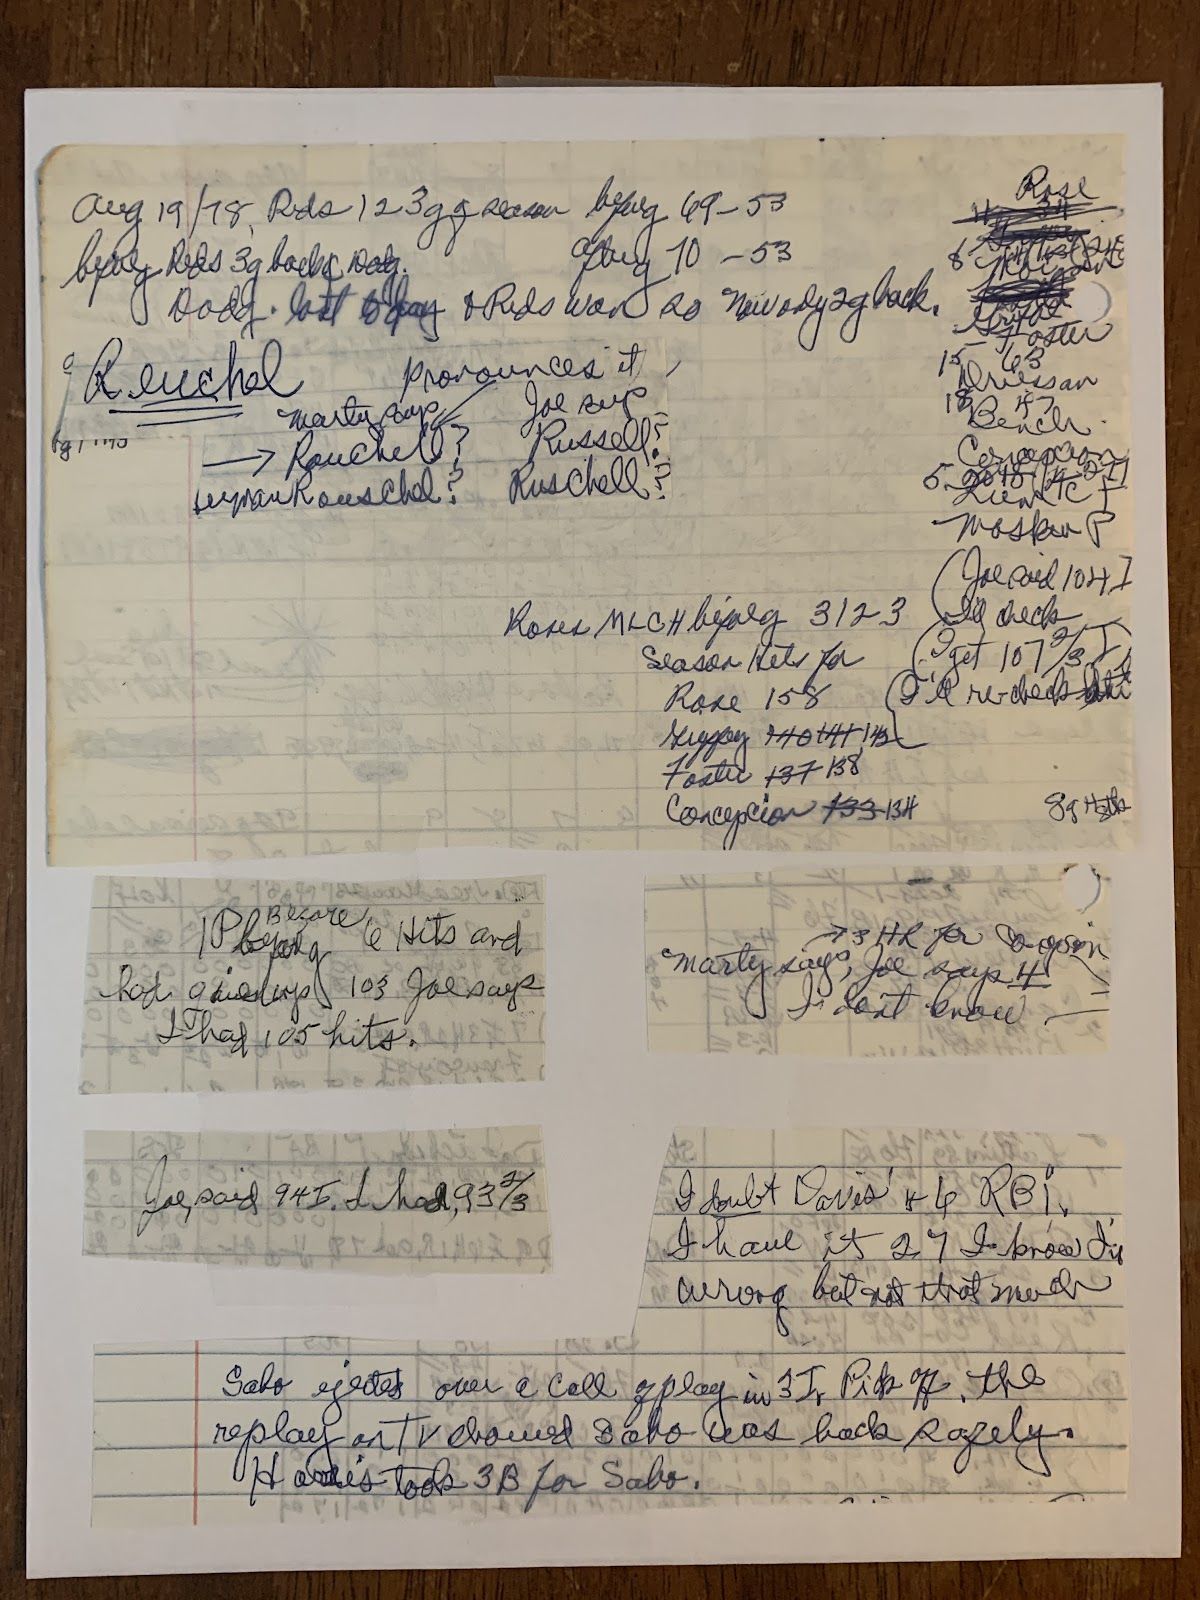 Aug 19/78, Reds 123g of season before g 69-53
before g Reds 3g back Dodg. after g 70-53
Dodg. lost today & Reds won so now only 2g back.
Reuchel pronounces it,
Marty says Joe says
→ Rouchell? Russell?
Rouschel? Ruschell?
Rose
Foster
15 63
Driessan
18 47
Bench
Concepcion
5
Moskau P
(Joe said 104 I
I'll check
(I get 107 2/3 I)
(I'll re-check
Roses MLCH before g 3123
Season Hits for
Rose 158
Griffey 140 141 142
Foster 137 138
Concepcion 133 134
8g Hits
1P before g Because 6 Hits and
had given up 103 Joe says
I had 105 hits.
→ 3 HR for
Marty says, Joe says 4
I don't know —
Joe, said 94 I. I had, 93 2/3
I doubt Davis' 46 RBI.
I have it 27 I know I'm
wrong but not that much
Sabo ejected over a call of play in 3I, Pick off. the
replay on TV showed Sabo was back safely.
Harris took 3B for Sabo.